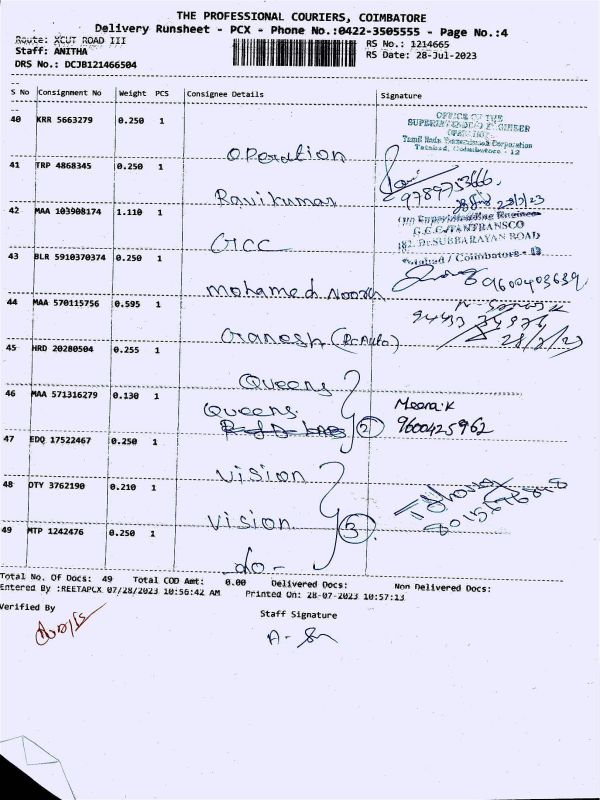 THE PROFESSIONAL COURIERS, COIMBATORE
Delivery Runsheet - PCX - Phone No.:0422-3505555 - Page No.:4
Route: XCUT ROAD III
RS No.: 1214665
Staff: ANITHA
RS Date: 28-Jul-2023
DRS No.: DCJB121466504
S No Consignment No Weight PCS Consignee Details Signature
40 KRR 5663279 0.250 1 Operation
OFFICE OF THE
SUPERINTENDING ENGINEER
Tamil Nadu Transmission Corporation
Tatabad, Coimbatore - 12
41 TRP 4868345 0.250 1 Ravikumar
9789753666
28/7/23
42 MAA 103908174 1.110 1 GCC
Superintending Engineer
G.C.C/TANTRANSCO
182, Dr.SUBBARAYAN ROAD
Tatabad / Coimbatore - 12
43 BLR 5910370374 0.250 1 Mohamed Noorul
9600403639
44 MAA 570115756 0.595 1 Ganesh (R.Auto)
28/7/23
45 HRD 20280504 0.255 1 Queens
46 MAA 571316279 0.130 1 Queens
2
Meera.K
9600425962
47 EDQ 17522467 0.250 1 Vision
48 OTY 3762190 0.210 1 Vision
3
49 MTP 1242476 0.250 1 -do-
Total No. Of Docs: 49 Total COD Amt: 0.00 Delivered Docs: Non Delivered Docs:
Entered By :REETAPCX 07/28/2023 10:56:42 AM Printed On: 28-07-2023 10:57:13
Verified By
Staff Signature